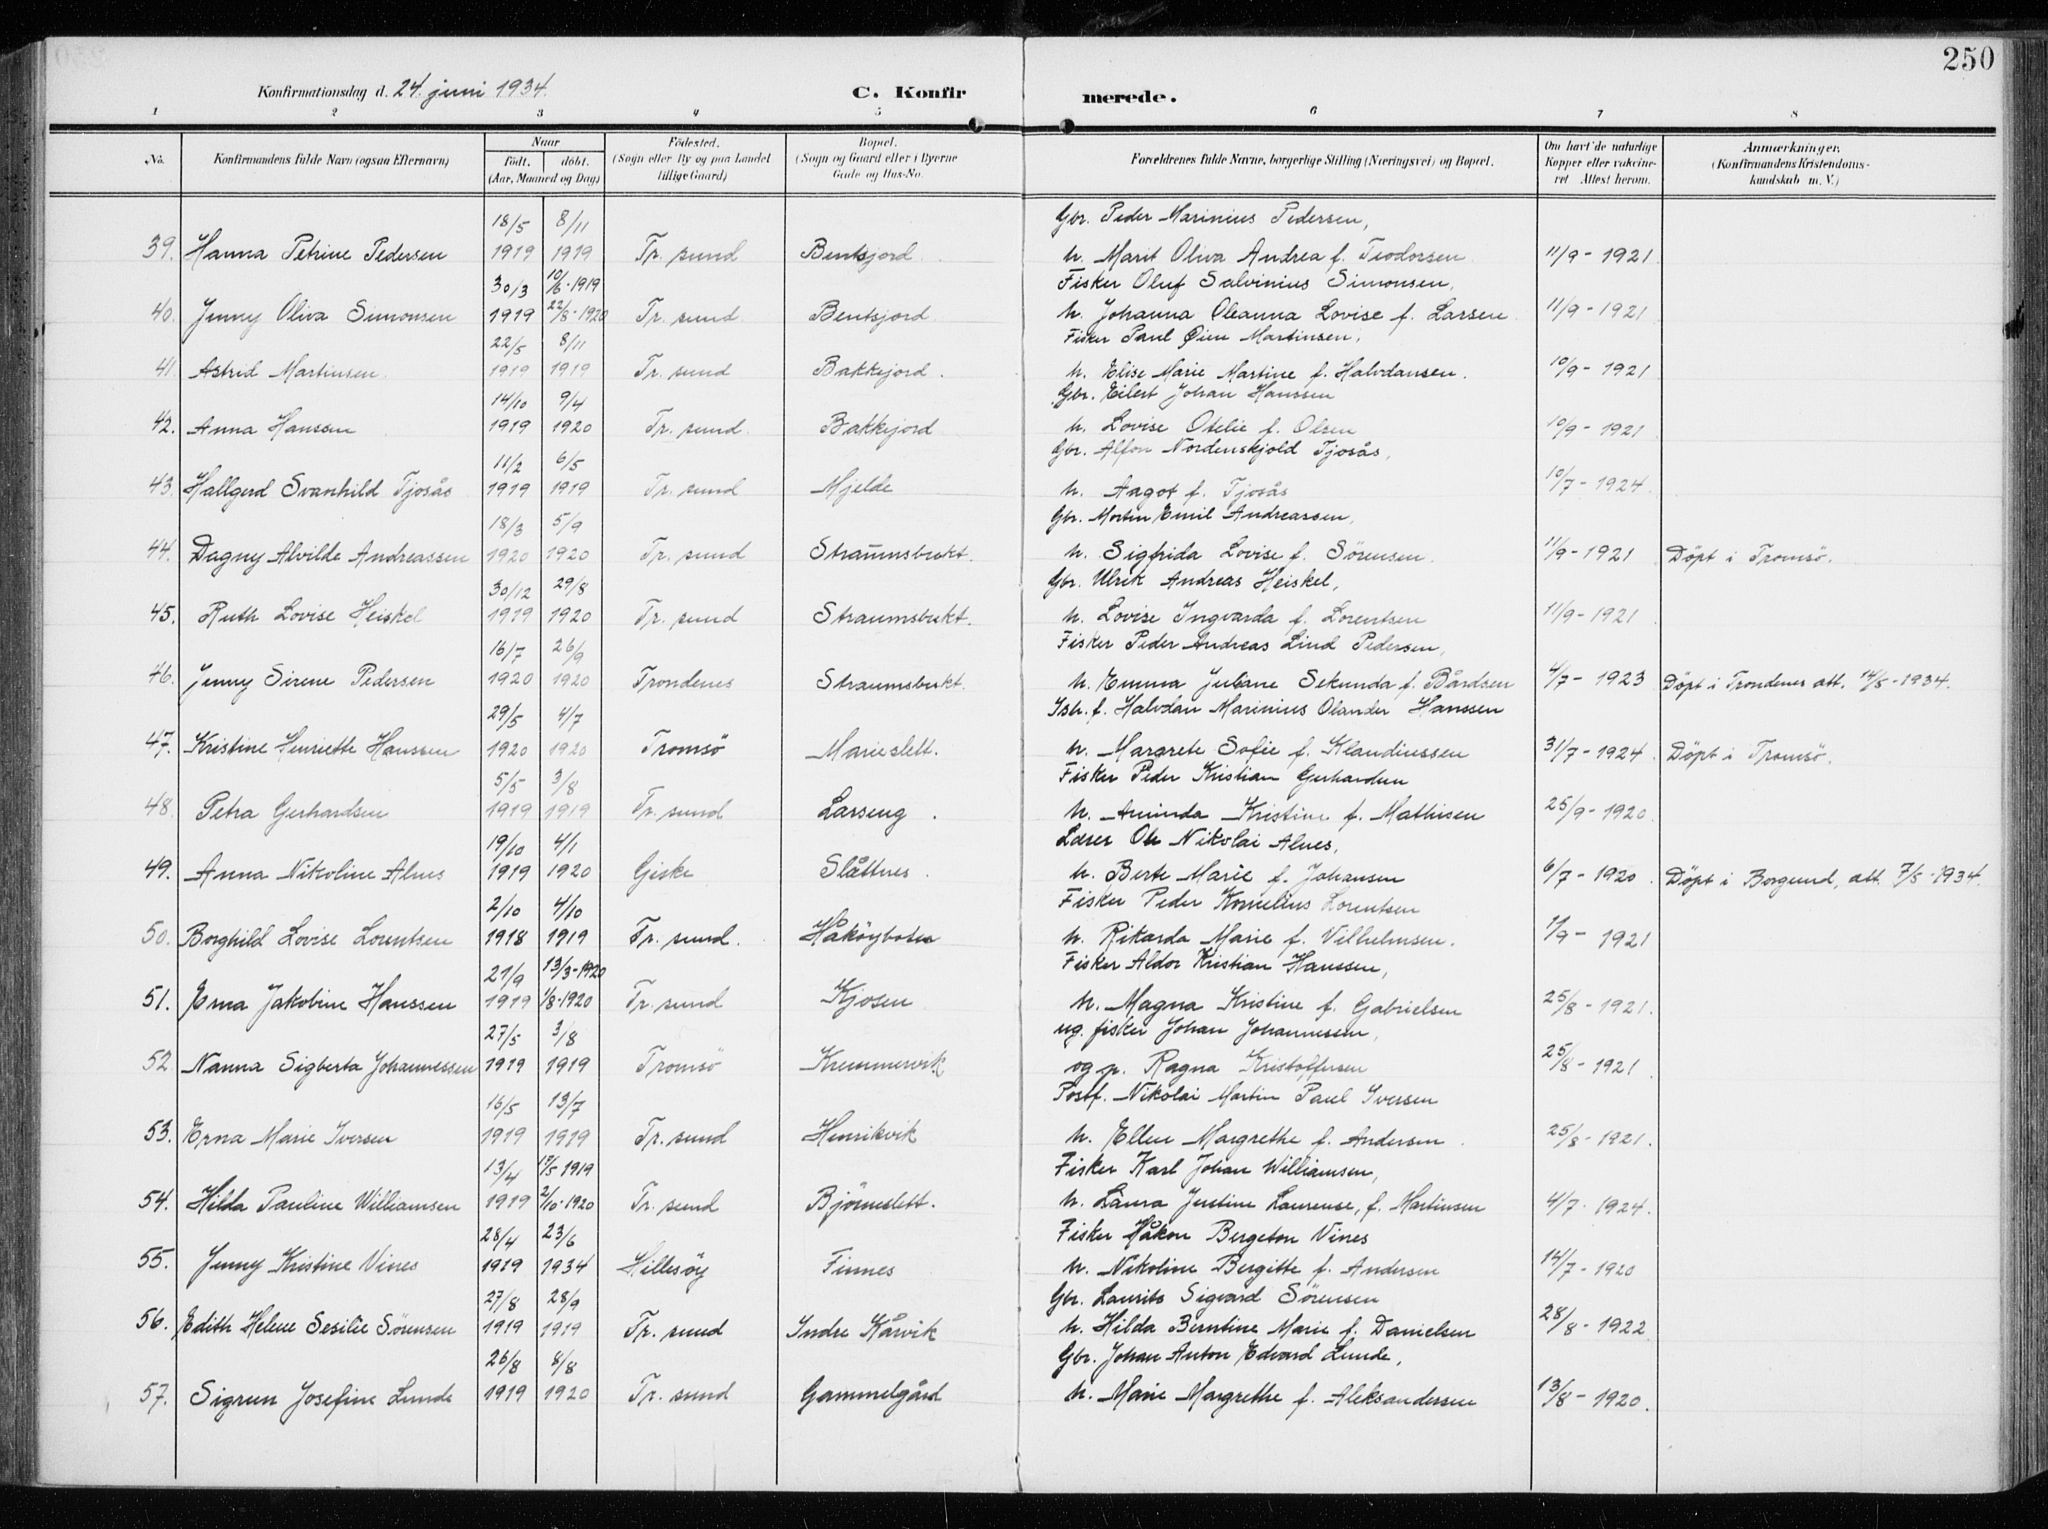 250
Konfirmationsdag d. 24. juni 1934.
C. Konfirmerede.
1 2 3 4 5 6 7 8
No. Konfirmandens fulde Navn (ogsaa Efternavn) Naar født. døbt. (Aar, Maaned og Dag) Fødested. (Sogn eller By og paa Landet tillige Gaard) Bopæl. (Sogn og Gaard eller i Byerne Gade og Hus-No. Forældrenes fulde Navne, borgerlige Stilling (Næringsvei) og Bopæl. Om havt de naturlige Kopper eller vakcineret Attest herom. Anmærkninger. (Konfirmandens Kristendomskundskab m. V.)
18/5 8/11 Gbr. Peder Marinius Pedersen,
39. Hanna Petrine Pedersen 1919 1919 Tr. sund Bentsjord h. Marit Oliva Andrea f. Teodorsen 11/9 - 1921
30/3 10/6-1919 Fisker Oluf Salvinius Simonsen,
40. Jenny Oliva Simonsen 1919 22/8-1920 Tr. sund Bentsjord h. Johanna Oleanna Lovise f. Larsen 11/9 - 1921
22/5 8/11 Fisker Paul Øien Martinsen,
41. Astrid Martinsen 1919 1919 Tr. sund Bakkejord. h. Elise Marie Martine f. Halvdansen. 10/9 - 1921
14/10 9/4 Gbr. Eilert Johan Hanssen
42. Anna Hanssen 1919 1920 Tr. sund Bakkejord h. Lovise Otelie f. Olsen 10/9 - 1921
11/2 6/5 Gbr. Alfon Nordenskjold Tjosås,
43. Hallgerd Svanhild Tjosås 1919 1919 Tr. sund Mjelde h. Aagot f. Tjosås 10/7 - 1924
18/3 5/9 Gbr. Morten Emil Andreassen,
44. Dagny Alvilde Andreassen 1920 1920 Tr. sund Straumsbukt. h. Sigfrida Lovise f. Sørensen. 11/9 - 1921 Döpt i Tromsö.
30/12 29/8 Gbr. Ulrik Andreas Heiskel,
45. Ruth Lovise Heiskel 1919 1920 Tr. sund Straumsbukt. h. Lovise Ingvarda f. Lorentsen 11/9 - 1921
16/7 26/9 Fisker Peder Andreas Lind Pedersen,
46. Jenny Sirene Pedersen 1920 1920 Trondenes Straumsbukt. h. Emma Juliane Sekunda f. Bårdsen 4/7 - 1923 Döpt i Trondenes att. 14/5-1934.
29/5 4/7 Ish. f. Halvdan Marinius Olander Hanssen
47. Kristine Henriette Hanssen 1920 1920 Tromsö Marieslett. h. Margrete Sofie f. Klaudiussen 31/7 - 1924 Döpt i Tromsö.
5/5 3/8 Fisker Peder Kristian Gerhardsen
48. Petra Gerhardsen 1919 1919 Tr. sund Larseng. h. Aminda Kristine f. Mathisen 25/9 - 1920
19/10 4/1 Lærer Ole Nikolai Alnes,
49. Anna Nikoline Alnes 1919 1920 Giske Slåttnes. h. Berte Marie f. Johansen 6/7 - 1920 Döpt i Borgund, att. 7/5-1934.
2/10 4/10 Fisker Peder Kornelius Lorentsen
50. Borghild Lovise Lorentsen 1918 1919 Tr. sund. Håköybotn h. Rikarda Marie f. Vilhelmsen. 1921
21/9 13/3-1920 Fisker Aldor Kristian Hanssen,
51. Erna Jakobine Hanssen 1919 1/8-1920 Tr. sund Kjosen h. Magna Kristine f. Gabrielsen 25/8 - 1921.
27/5 3/8 ug. fisker Johan Johannessen,
52. Nanna Sigberta Johannessen 1919 1919 Tromsö Kremmervik og p. Ragna Kristoffersen 25/8 - 1921
16/5 13/7 Postf. Nikolai Martin Paul Iversen
53. Erna Marie Iversen 1919 1919 Tr. sund Henrikvik h. Ellen Margrethe f. Andersen 25/8 - 1921.
13/4 1919 Fisker Karl Johan Williamsen,
54. Hilda Pauline Williamsen 1919 2/10-1920 Tr. sund Björneslett. h. Laura Justine Laurense, f. Martinsen 4/7 - 1924.
28/4 23/6 Fisker Håkon Bergeton Vines
55. Jenny Kristine Vines 1919 1934 Hillesöy Finnes h. Nikoline Bergitte f. Andersen 14/7 - 1920
27/8 28/9 Gbr. Laurits Sigvard Sörensen
56. Edith Helene Sesilie Sörensen 1919 1919 Tr. sund Indre Kårvik h. Hilda Berntine Marie f. Danielsen 28/8 - 1922
26/8 8/8 Gbr. Johan Anton Edvard Lunde,
57. Sigrun Josefine Lunde 1919 1920 Tr. sund Gammelgård h. Marie Margrethe f. Aleksandersen 13/8 - 1920.